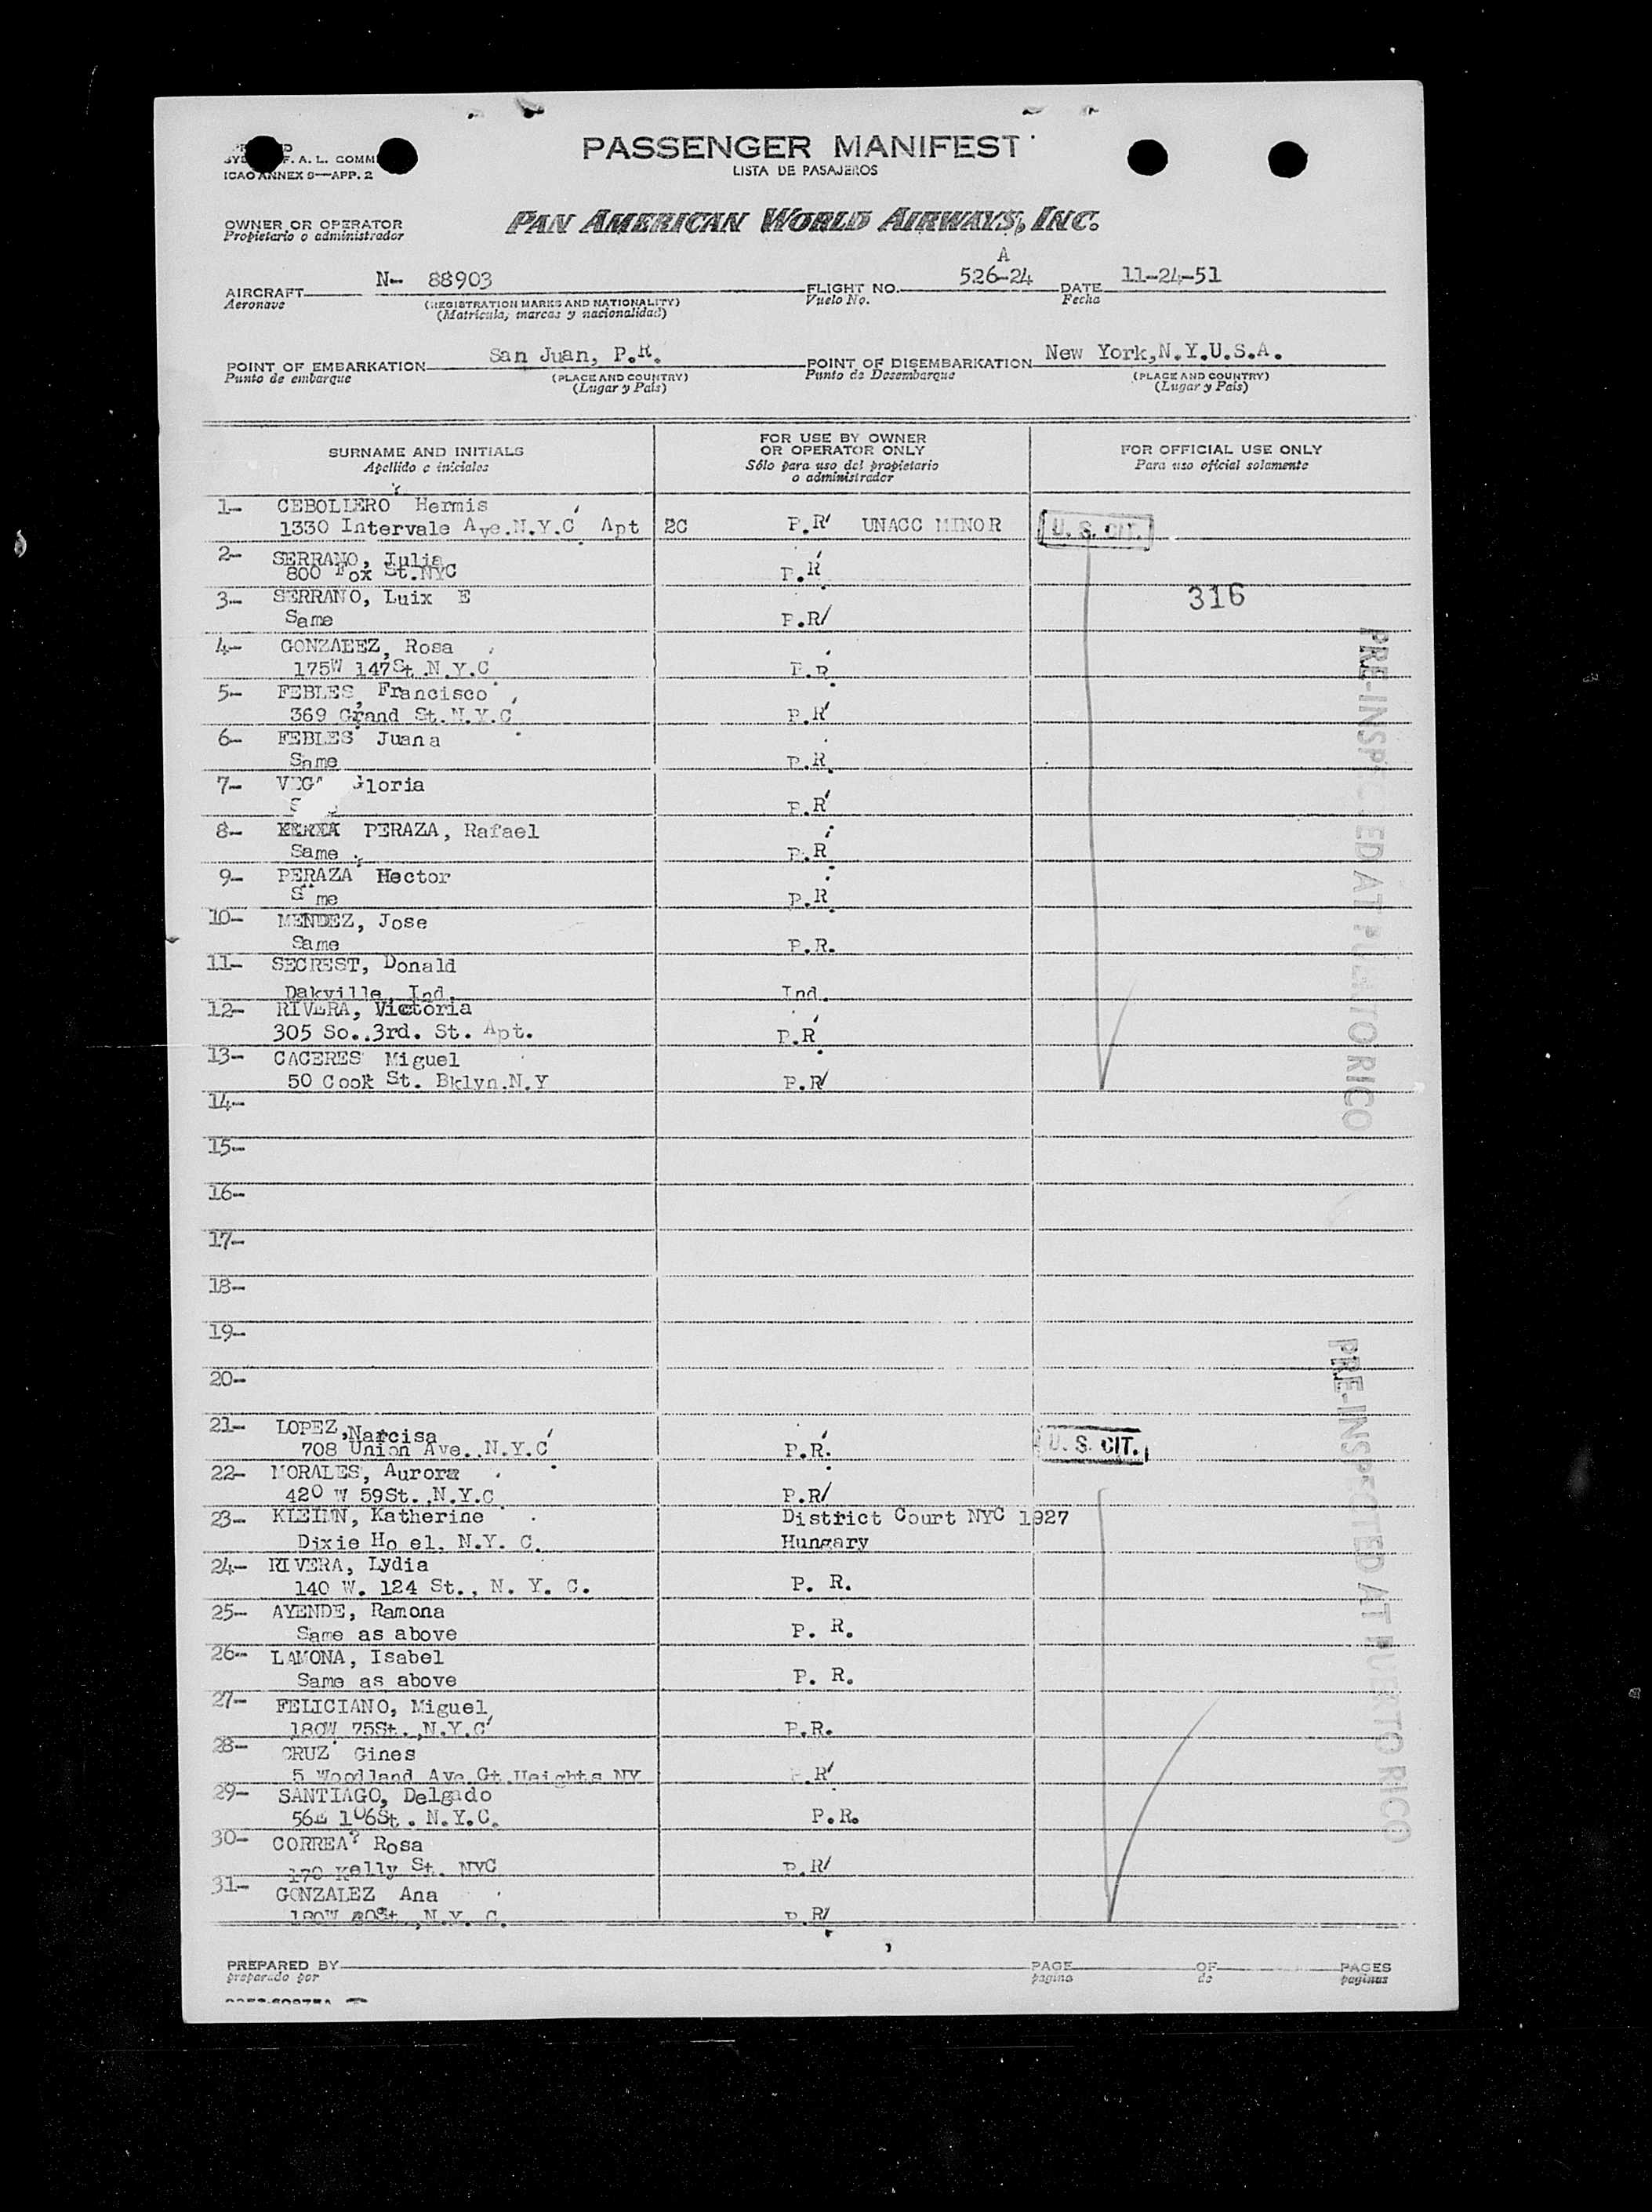 PASSENGER MANIFEST
LISTA DE PASAJEROS
F. A. L. COMM
ICAO ANNEX 9—APP. 2
PAN AMERICAN WORLD AIRWAYS, INC.
OWNER OR OPERATOR
Propietario o administrador
AIRCRAFT N- 88903 FLIGHT NO. 526-24 A DATE 11-24-51
Aeronave (REGISTRATION MARKS AND NATIONALITY) Vuelo No. Fecha
(Matrícula, marcas y nacionalidad)
POINT OF EMBARKATION San Juan, P.R. POINT OF DISEMBARKATION New York,N.Y.U.S.A.
Punto de embarque (PLACE AND COUNTRY) Punto de Desembarque (PLACE AND COUNTRY)
(Lugar y País) (Lugar y País)
SURNAME AND INITIALS FOR USE BY OWNER OR OPERATOR ONLY FOR OFFICIAL USE ONLY
Apellido e iniciales Sólo para uso del propietario o administrador Para uso oficial solamente
1- CEBOLLERO Hermis
1330 Intervale Ave.N.Y.C Apt 2C P.R UNACC MINOR U. S. CIT.
2- SERRANO, Julia
800 Fox St.NYC P.R
3- SERRANO, Luix E 316
Same P.R/
4- GONZALEZ, Rosa
175W 147St.N.Y.C P.R.
5- FEBLES, Francisco
369 Grand St.N.Y.C P.R
6- FEBLES Juana
Same P.R.
7- Gloria
P.R
8- PERAZA, Rafael
Same P.R
9- PERAZA Hector
Same P.R
10- MENDEZ, Jose
Same P.R.
11- SECREST, Donald
Dakville, Ind. Ind.
12- RIVERA, Victoria
305 So..3rd. St. Apt. P.R
13- CACERES Miguel
50 Cook St. Bklyn.N.Y P.R/
14-
15-
16-
17-
18-
19-
20-
21- LOPEZ,Narcisa
708 Union Ave..N.Y.C P.R. U. S. CIT.
22- MORALES, Aurora
420 W 59St..N.Y.C P.R/
23- KLEINN, Katherine District Court NYC 1927
Dixie Ho el, N.Y. C. Hungary
24- RIVERA, Lydia
140 W. 124 St., N. Y. C. P. R.
25- AYENDE, Ramona
Same as above P. R.
26- LAMONA, Isabel
Same as above P. R.
27- FELICIANO, Miguel
180W 75St..N.Y.C P.R.
28- CRUZ Gines
5 Woodland Ave.Gt.Heights NY R
29- SANTIAGO, Delgado
56E 106St. N.Y.C. P.R.
30- CORREA? Rosa
170 Kelly St. NYC P.R/
31- GONZALEZ Ana
N.Y. C. P.R/
PRE-INSPECTED AT PUERTO RICO
PRE-INSPECTED AT PUERTO RICO
PREPARED BY PAGE OF PAGES
preparado por página de páginas